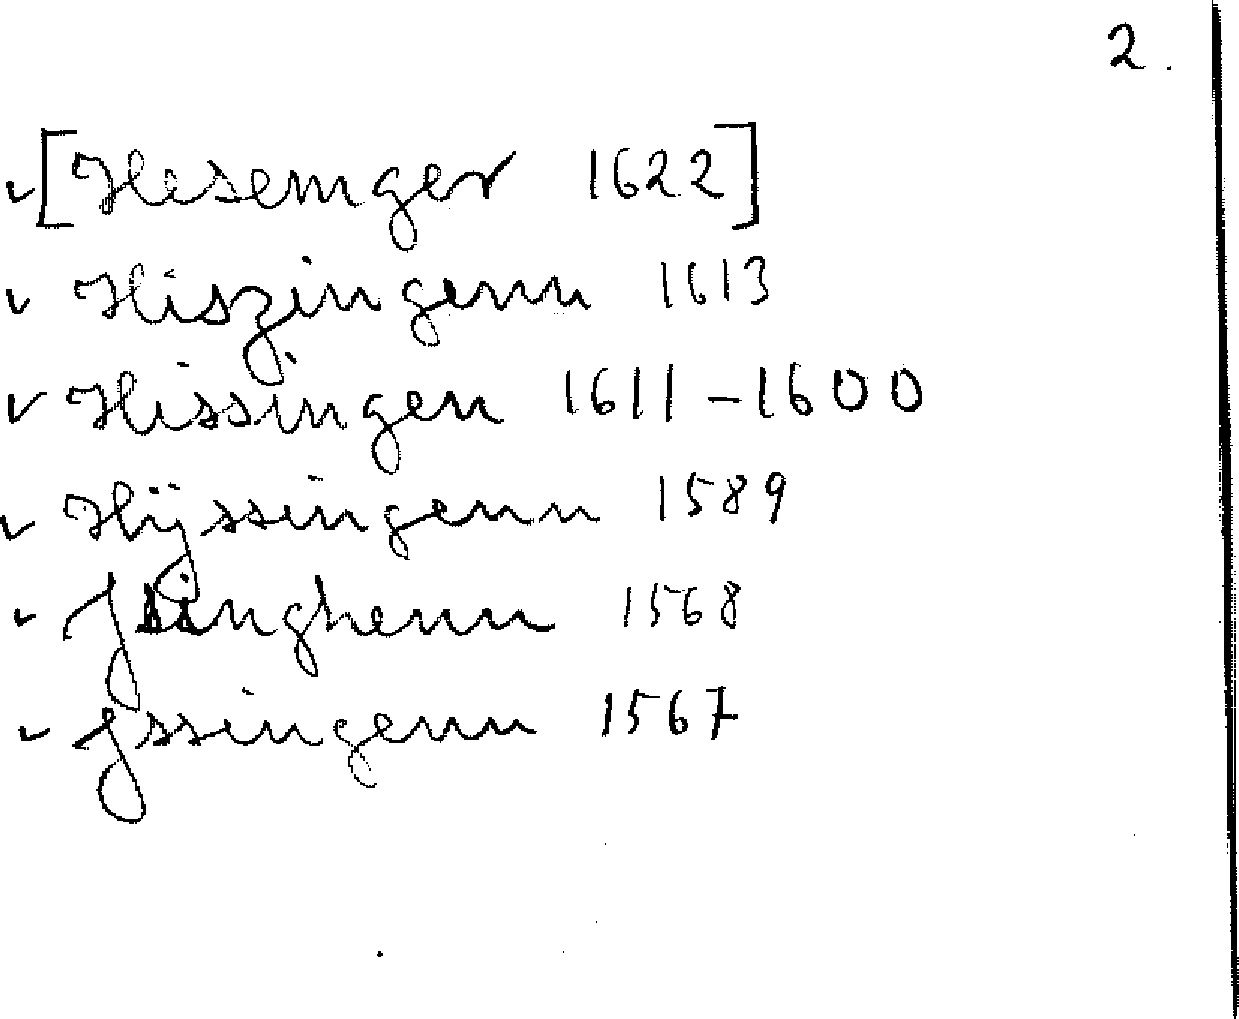 2.
✓ [Hesemger 1622]
✓ Hiszingenn 1613
✓ Hissingen 1611-1600
✓ Hÿssingenn 1589
✓ Jsinghenn 1568
✓ Jssingenn 1567